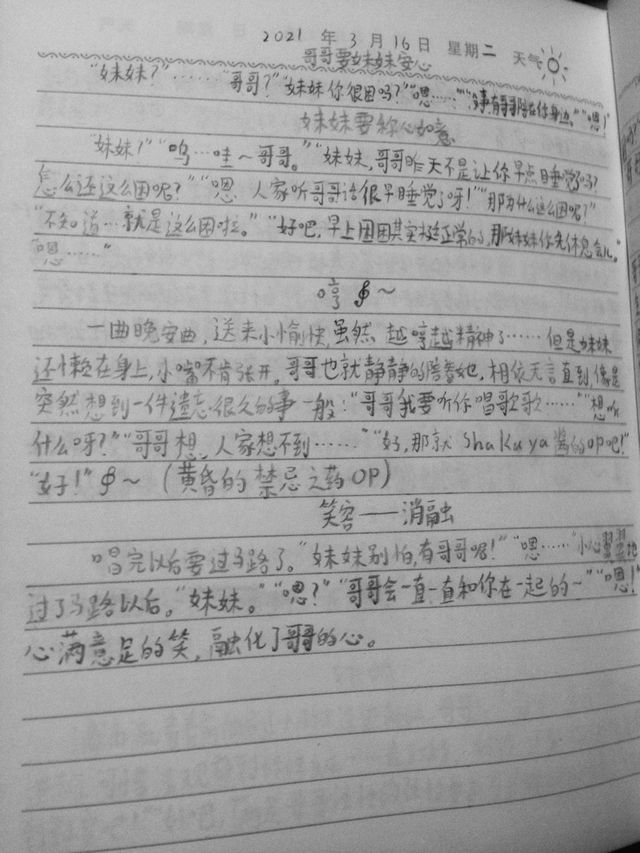 2021 年 3 月 16 日 星期二 天气
哥哥要妹妹安心
“妹妹?”……“哥哥?”“妹妹你很困吗?”“嗯……”“没事有哥哥陪在你身边。”“嗯!”
妹妹要称心如意
“妹妹!”“呜…哇~哥哥。”“妹妹,哥哥昨天不是让你早点睡觉了吗?
怎么还这么困呢?”“嗯,人家听哥哥话很早睡觉了呀!”“那为什么这么困呢?”
“不知道…就是这么困啦。”“好吧,早上困困其实挺正常的,那妹妹你先休息会儿。”
“嗯……”
哼 ~
一曲晚安曲,送来小愉快,虽然 越哼越精神了……但是妹妹
还懒在身上,小嘴不肯张开。哥哥也就静静的陪着她,相依无言直到像是
突然想到一件遗忘很久的事一般:“哥哥我要听你唱歌歌……”“想听
什么呀?”“哥哥想,人家想不到……”“好,那就 shakuya 酱的OP吧!”
“好!” ~ (黄昏的禁忌之药OP)
笑容——消融
唱完以后要过马路了。“妹妹别怕,有哥哥呢!”“嗯……”小心翼翼地
过了马路以后。“妹妹。”“嗯?”“哥哥会一直一直和你在一起的~”“嗯!”
心满意足的笑,融化了哥哥的心。